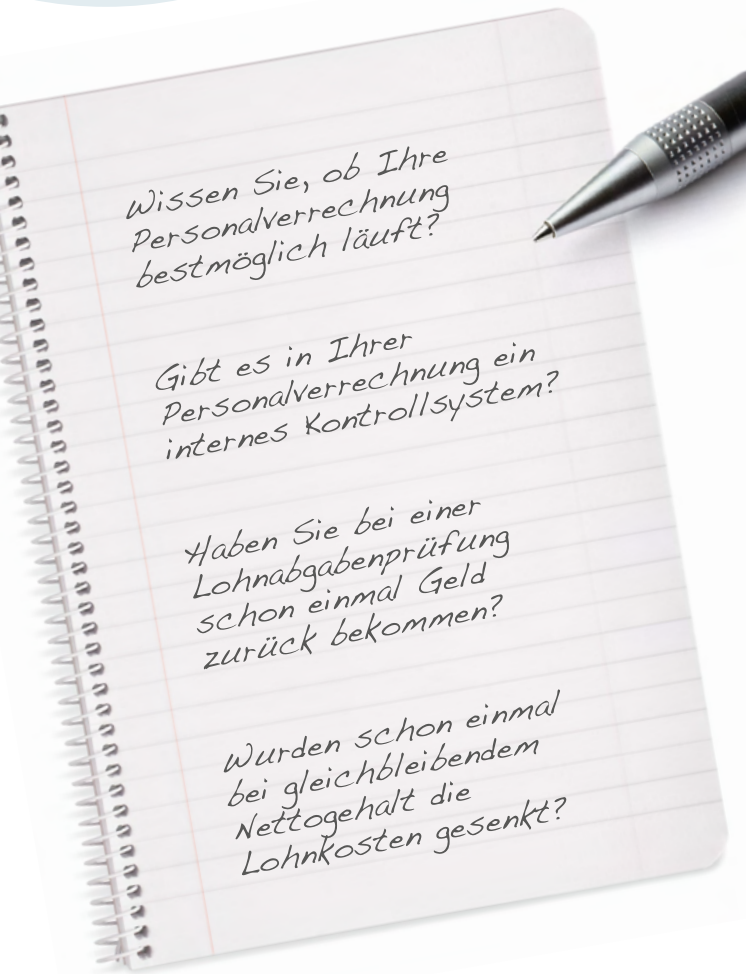 Wissen Sie, ob Ihre
Personalverrechnung
bestmöglich läuft?
Gibt es in Ihrer
Personalverrechnung ein
internes Kontrollsystem?
Haben Sie bei einer
Lohnabgabenprüfung
schon einmal Geld
zurück bekommen?
Wurden schon einmal
bei gleichbleibendem
Nettogehalt die
Lohnkosten gesenkt?